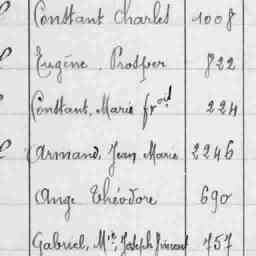 Constant Charles 1008
Eugène Prosper 822
Constant, Marie frois 224
Armand, Jean Marie 2246
Ange Théodore 690
Gabriel, Mie, Joseph Vincent 757